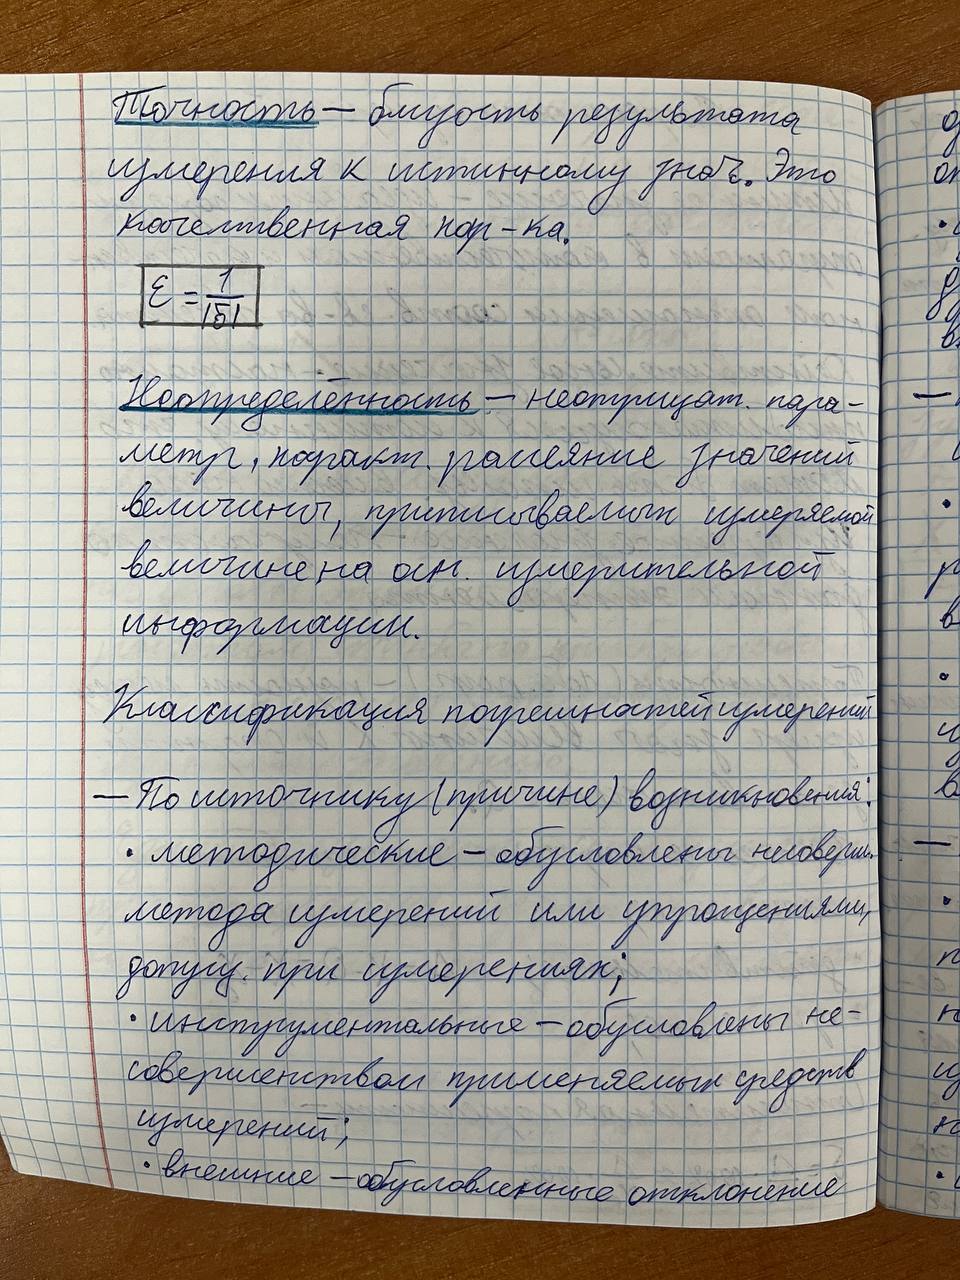 Точность — близость результата
измерения к истинному знач. Это
качественная хар-ка.
ε = 1/|δ|
Неопределённость — неотрицат. пара-
метр, характ. рассеяние значений
величины, приписываемых измеряемой
величине на осн. измерительной
информации.
Классификация погрешностей измерений
— По источнику (причине) возникновения:
• методические — обусловлены несоверш.
метода измерений или упрощениями,
допущ. при измерениях;
• инструментальные — обусловлены не-
совершенством применяемых средств
измерений;
• внешние — обусловленные отклонение